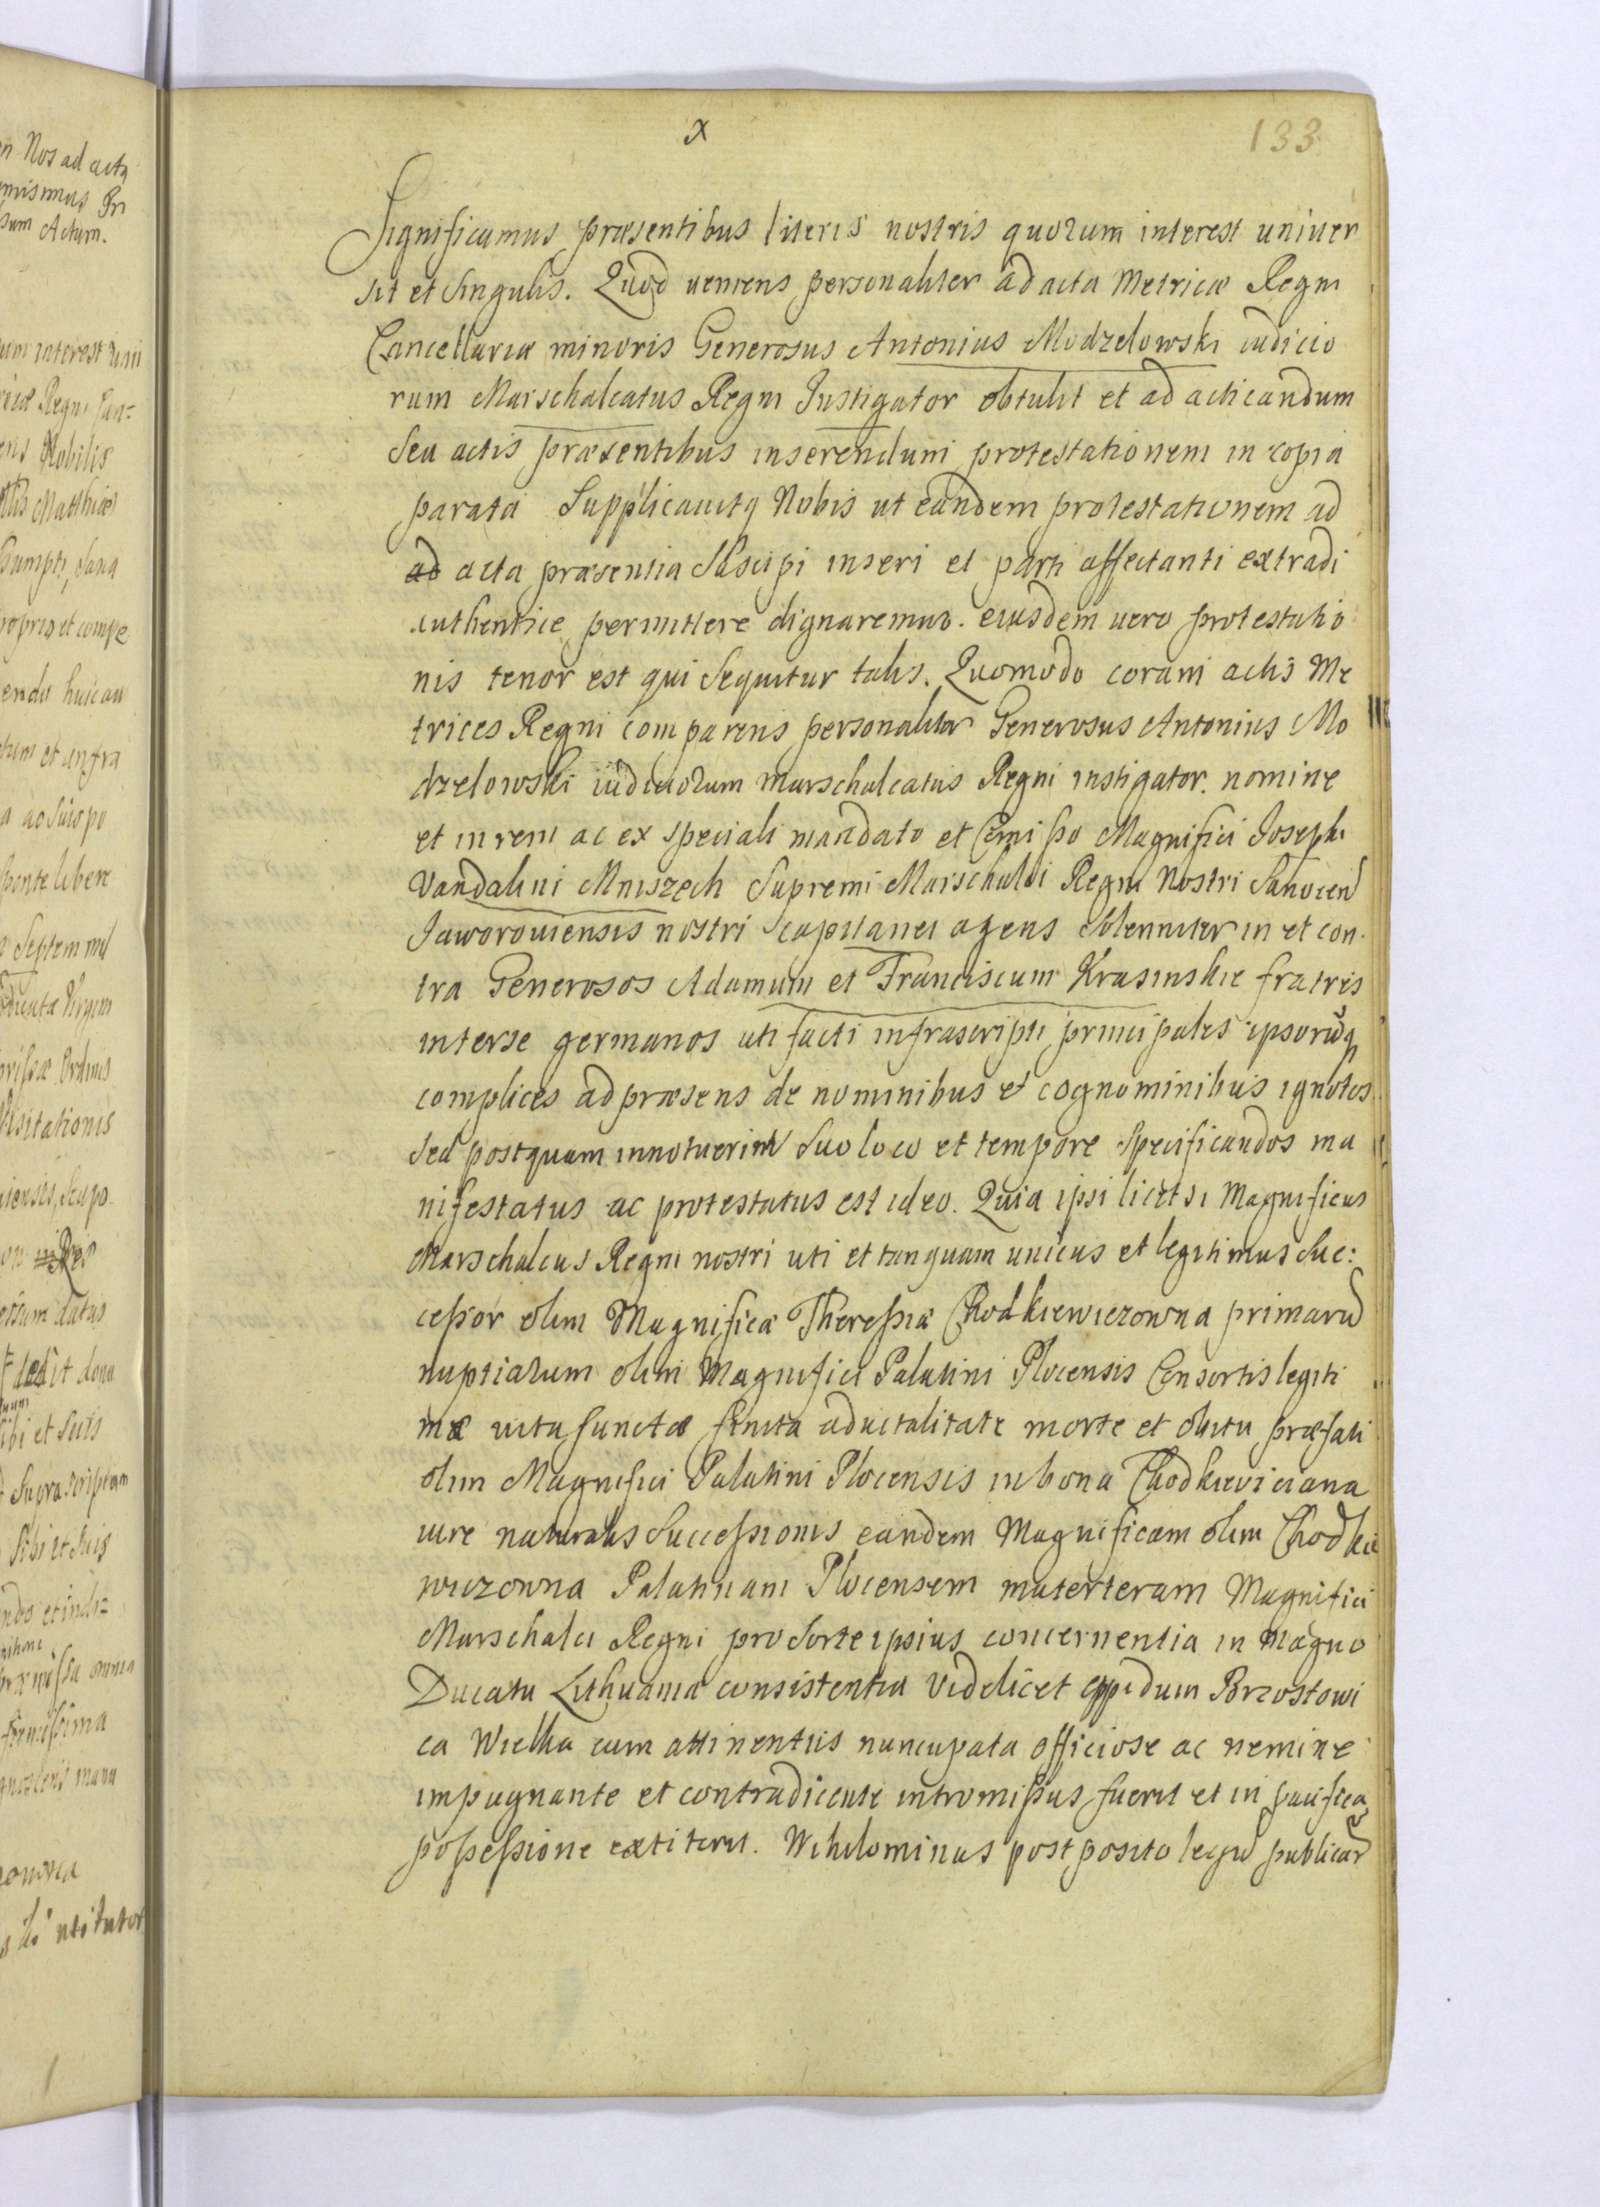 x
133
Significamus præsentibus literis nostris quorum interest univer
sis et Singulis. Quod veniens personaliter ad acta Metricæ Regni
Cancellariæ minoris Generosus Antonius Modzelowski iudicio
rum Marschalcatus Regni Instigator obtulit et ad acticandum
Seu actis præsentibus inserendum protestationem in copia
parata Supplicavitq Nobis ut eandem protestationem ad
ad acta præsentia Suscipi inseri et parti affectanti extradi
authentice permittere dignaremur. eiusdem vero protestatio
nis tenor est qui Sequitur talis. Quomodo coram actis Me
trices Regni comparens personaliter Generosus Antonius Mo
dzelowski iudiciorum Marschalcatus Regni instigator. nomine
et in rem ac ex speciali mandato et Comißo Magnifici Josephi
Vandalini Mniszech Supremi Marschalci Regni Nostri Sanocen
Jaworoviensis nostri capitanei agens Solenniter in et con
tra Generosos Adamum et Franciscum Krasinskie fratres
interse germanos uti facti infrascripti principales ipsorũq
complices ad præsens de nominibus et cognominibus ignotos
Sed postquam innotuerint Suo loco et tempore Specificandos ma
nifestatus ac protestatus est ideo. Quia ipsi licet si Magnificus
Marschalcus Regni nostri uti et tanquam unicus et legitimus Suc:
ceßor olim Magnificæ Thereßiæ Chodkiewiczowna primarũ
nuptiarum olim Magnifici Palatini Plocensis Consortis legiti
mæ vita functæ finita advitalitate morte et obitu præfati
olim Magnifici Palatini Plocensis in bona Chodkieviciana
iure naturalis Succeßionis eandem Magnificam olim Chodkie
wiczowna Palatinam Plocensem materteram Magnifici
Marschalci Regni pro Sorte ipsius concernentia in Magno
Ducatu Lithuaniæ consistentia videlicet oppidum Brzostowi
ca Wielka cum attinentiis nuncupata officiose ac nemine
impugnante et contradicente intromißus fuerit et in pacifica
poßeßione extiterit. Nihilominus postposito legũ publicarũ